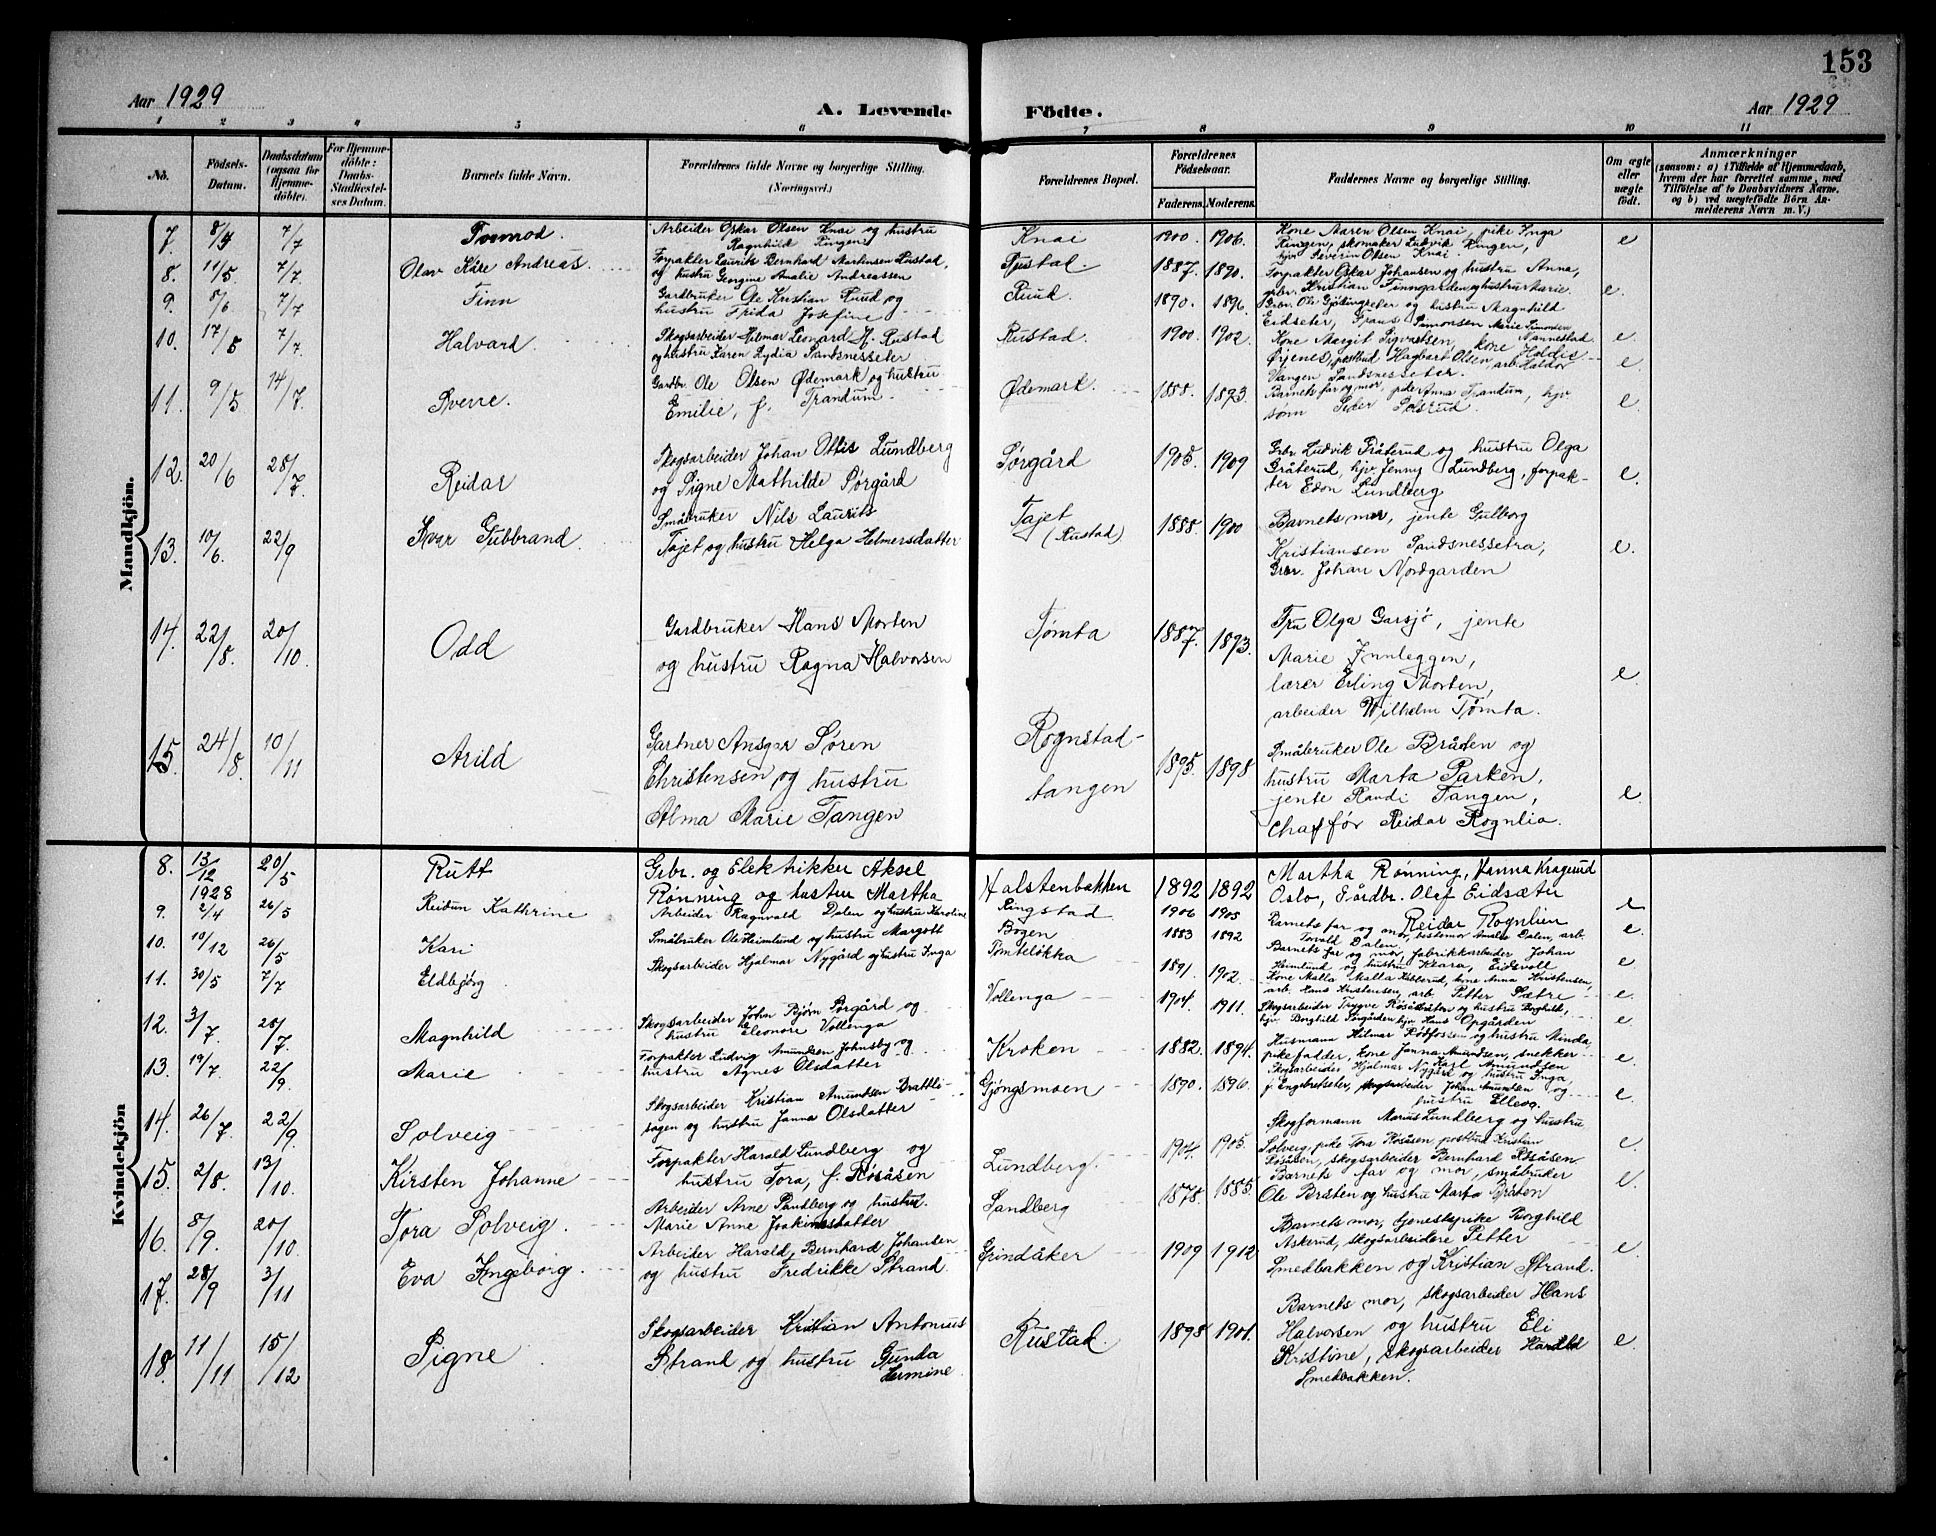 153
Aar 1929
A. Levende Födte.
Aar 1929
1 2 3 4 5 6 7 8 9 10 11
No.
Födsels-Datum.
Daabsdatum (ogsaa for Hjemme-döbte).
For Hjemme-döbte: Daabs-Stadfæstel-ses Datum.
Barnets fulde Navn.
Forældrenes fulde Navne og borgerlige Stilling.
(Næringsvei.)
Forældrenes Bopæl.
Forældrenes Födselsaar.
Faderens. Moderens.
Faddernes Navne og borgerlige Stilling.
Om ægte eller uægte födt.
Anmærkninger
(saasom: a) i Tilfælde af Hjemmedaab, hvem der har forrettet samme, med Tilföielse af to Daabsvidners Navne. og b) ved uægtefödte Börn Anmelderens Navn m. V.)
Mandkjön.
7. 8/5 7/7 Tormod. Arbeider Oskar Olsen Knai og hustru
Ragnhild Ringen. Knai 1900. 1906. Kone Karen Olsen Knai, pike Inga
Ringen, skomaker Ludvik Ringen,
hjv Severin Olsen Knai. e
8. 11/5 7/7. Olav Kåre Andreas. Forpakter Laurik Bernhard Martinsen Rustad,
og hustru Georgine Amalie Andreassen Rustad. 1887. 1890. Forpakter Oskar Johansen og hustru Anna,
grbr. Kristian Finngarden og hustru Marie. e.
9. 8/6 7/7 Finn Gardbruker Ole Kristian Ruud og
hustru Frida Josefine Ruud. 1890. 1896. Grbr. Ole Gjødingseter og hustru Magnhild
Eidseter, Frans Simonsen Marie Simonsen
10. 17/5 7/7 Halvard Skogsarbeider Hilmar Leonard H. Rustad
og hustru Karen Lydia Sandsnesseter Rustad. 1900. 1902. Kone Margit Sigvartsen, kone Nannestad e
Ørjenes, postbud Hagbart Olsen, arb. Haldor
Vangen Sandsnesseter. e
11. 9/5 14/7. Sverre. Gardbr. Ole Olsen Ødemark og hustru
Emilie, f. Trandum. Ødemark. 1888. 1893. Barnets far og mor, pike Anna Trandum, hjv
sønn Peder Solsrud. e
12. 20/6 28/7. Reidar Skogsarbeider Johan Ottis Lundberg
og Signe Mathilde Sørgård Sørgård 1905. 1909 Grbr Ludvik Gråterud og hustru Olga
Gråterud, hjv. Jenny Lundberg, forpak-
ter Edon Lundberg e.
13. 10/6. 22/9 Ivar Gudbrand Småbruker Nils Laurits
Tajet og hustru Helga Helmersdatter Tajet
(Rustad) 1888. 1900 Barnets mor, jente Gulborg
Kristiansen Sandsnessetra,
Grbr. Johan Nordgarden e.
14. 22/8. 20/10. Odd Gardbruker Hans Morten
og hustru Ragna Halvorsen Tømta 1887. 1893. Fru Olga Garsjø, jente
Marie Innleggen,
lærer Erling Morten,
arbeider Wilhelm Tømta. e
15. 24/8. 10/11 Arild Gartner Ansgar Søren
Christensen og hustru
Alma Marie Tangen Rognstad-
tangen 1895. 1898 Småbruker Ole Bråten og
hustru Marta Parken,
jente Randi Tangen,
chaffør Reidar Rognlia. e
Kvindekjön
8. 13/12 1928 20/5 Rutt Grbr. og Elektrikker Aksel
Rønning og hustru Martha Halstenbakken 1892 1892 Martha Rønning, Hanna Kragerud
Oslo, Gårdbr. Olef Eidsæter
Reidar Rognlien e
9. 2/4 26/5 Reidun Kathrine Arbeider Ragnvald Dalen og hustru Karoline Ringstad 1906 1905 Barnets far og mor, bestemor Amalie Dalen, arb.
Torvald Dalen. e.
10. 10/12 26/5 Kari Småbruker Ole Heimlund og hustru Margott Bogen 1883 1892 Barnets far og mor, fabrikkarbeider Johan
Heimlund og hustru Klara, Eidsvoll e
11. 30/5 7/7 Eldbjørg Skogsarbeider Hjalmar Nygård og hustru Inga Tømteløkka 1891. 1902. Kone Malla Kibberud, kone Anna Kristensen,
arb. Hans Kristensen, arb. Petter Sætre e
12. 3/7. 28/7 Magnhild Skogsarbeider John Bjørn Sørgård og
hustru Eleonore Vollenga Vollenga 1904. 1911. Skogsarbeider Trygve Røsåsen og hustru Borghild,
hjv Borghild Sørgården hjv Hans Opgården e
13. 19/7. 22/9. Marie Forpakter Ludvig Amundsen Johnsby og
hustru Agnes Olsdatter Kroken 1882. 1894. Husmann Hilmar Rødfossen og hustru Minda,
pikefadder, kone Janna Amundsen, snekker
Karl Amundsen e
14. 26/7 22/9 Solveig Skogsarbeider Kristian Amundsen Brattli-
sagen og hustru Janna Olsdatter Gjøngsmoen 1890. 1896. Skogsarbeider Hjalmar Nygård og hustru Inga
f. Engebretseter, skogsarbeider Johan Amundsen og
hustru Ellevs. e.
15. 2/8. 13/10. Kirsten Johanne Forpakter Harald Lundberg og
hustru Tora, f. Røsåsen Lundberg. 1904. 1905. Skogformann Marius Lundberg og hustru
Solveig, pike Tora Røsåsen, postbud Kristian
Røsåsen, skogsarbeider Bernhard Røsåsen e
16. 8/9. 20/10. Tora Solveig. Arbeider Arne Sandberg og hustru
Marie Anne Joakimsdatter Sandberg 1878. 1885. Barnets far og mor, småbruker
Ole Bråten og hustru Marta Bråten e.
17. 28/9 3/11 Eva Ingeborg. Arbeider Harald Bernhard Johansen
og hustru Fredrikke Strand. Grindåker 1909 1912 Barnets mor, tjenestepike Borghild
Askerud, skogsarbeidere Petter
Smedbakken og Kristian Strand. e
18. 11/11 15/12 Signe Skogsarbeider Kristian Antonius
Strand og hustru Gunda
Hermine Rustad 1898 1901. Barnets mor, skogsarbeider Hans
Halvorsen og hustru Eli
Kristine, skogsarbeider Harald
Smedbakken. e